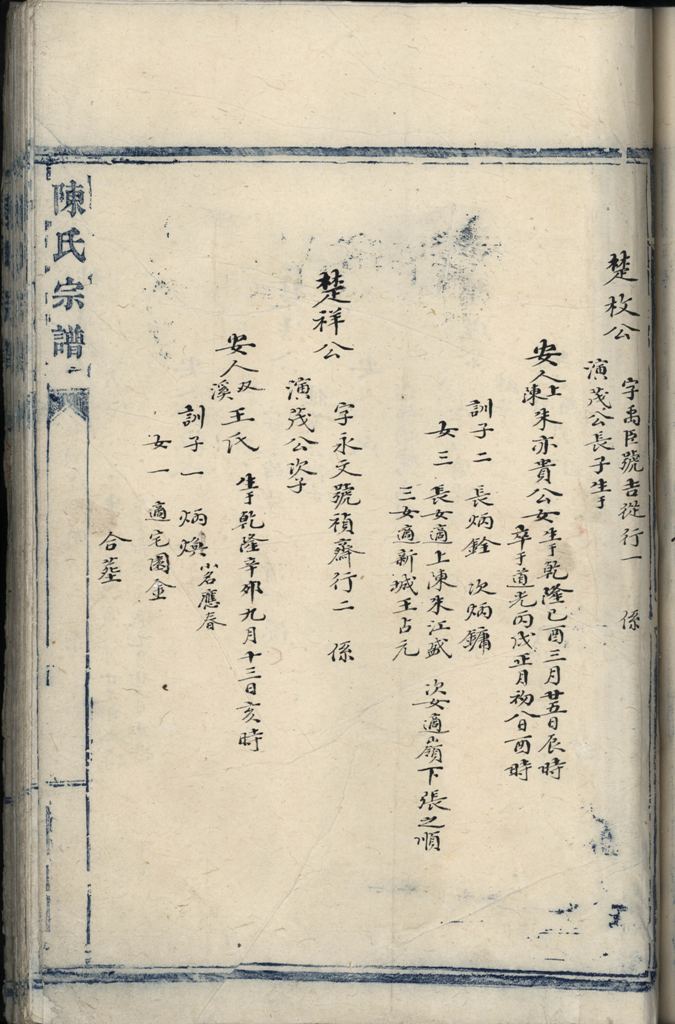 楚枚公
字禹臣號吉從行一 係
演茂公長子生于
安人上陳朱亦貴公女
生于乾隆己酉三月廿五日辰時
卒于道光丙戌正月初八日酉時
訓子二 長炳銓 次炳鏞
女三 長女適上陳朱江盛 次女適嶺下張之順
三女適新城王占元
楚祥公
字永文號禎齋行二 係
演茂公次子
安人双溪王氏 生于乾隆辛卯九月十三日亥時
訓子一 炳煥 小名應春
女一 適宅園金
合塟
陳氏宗譜